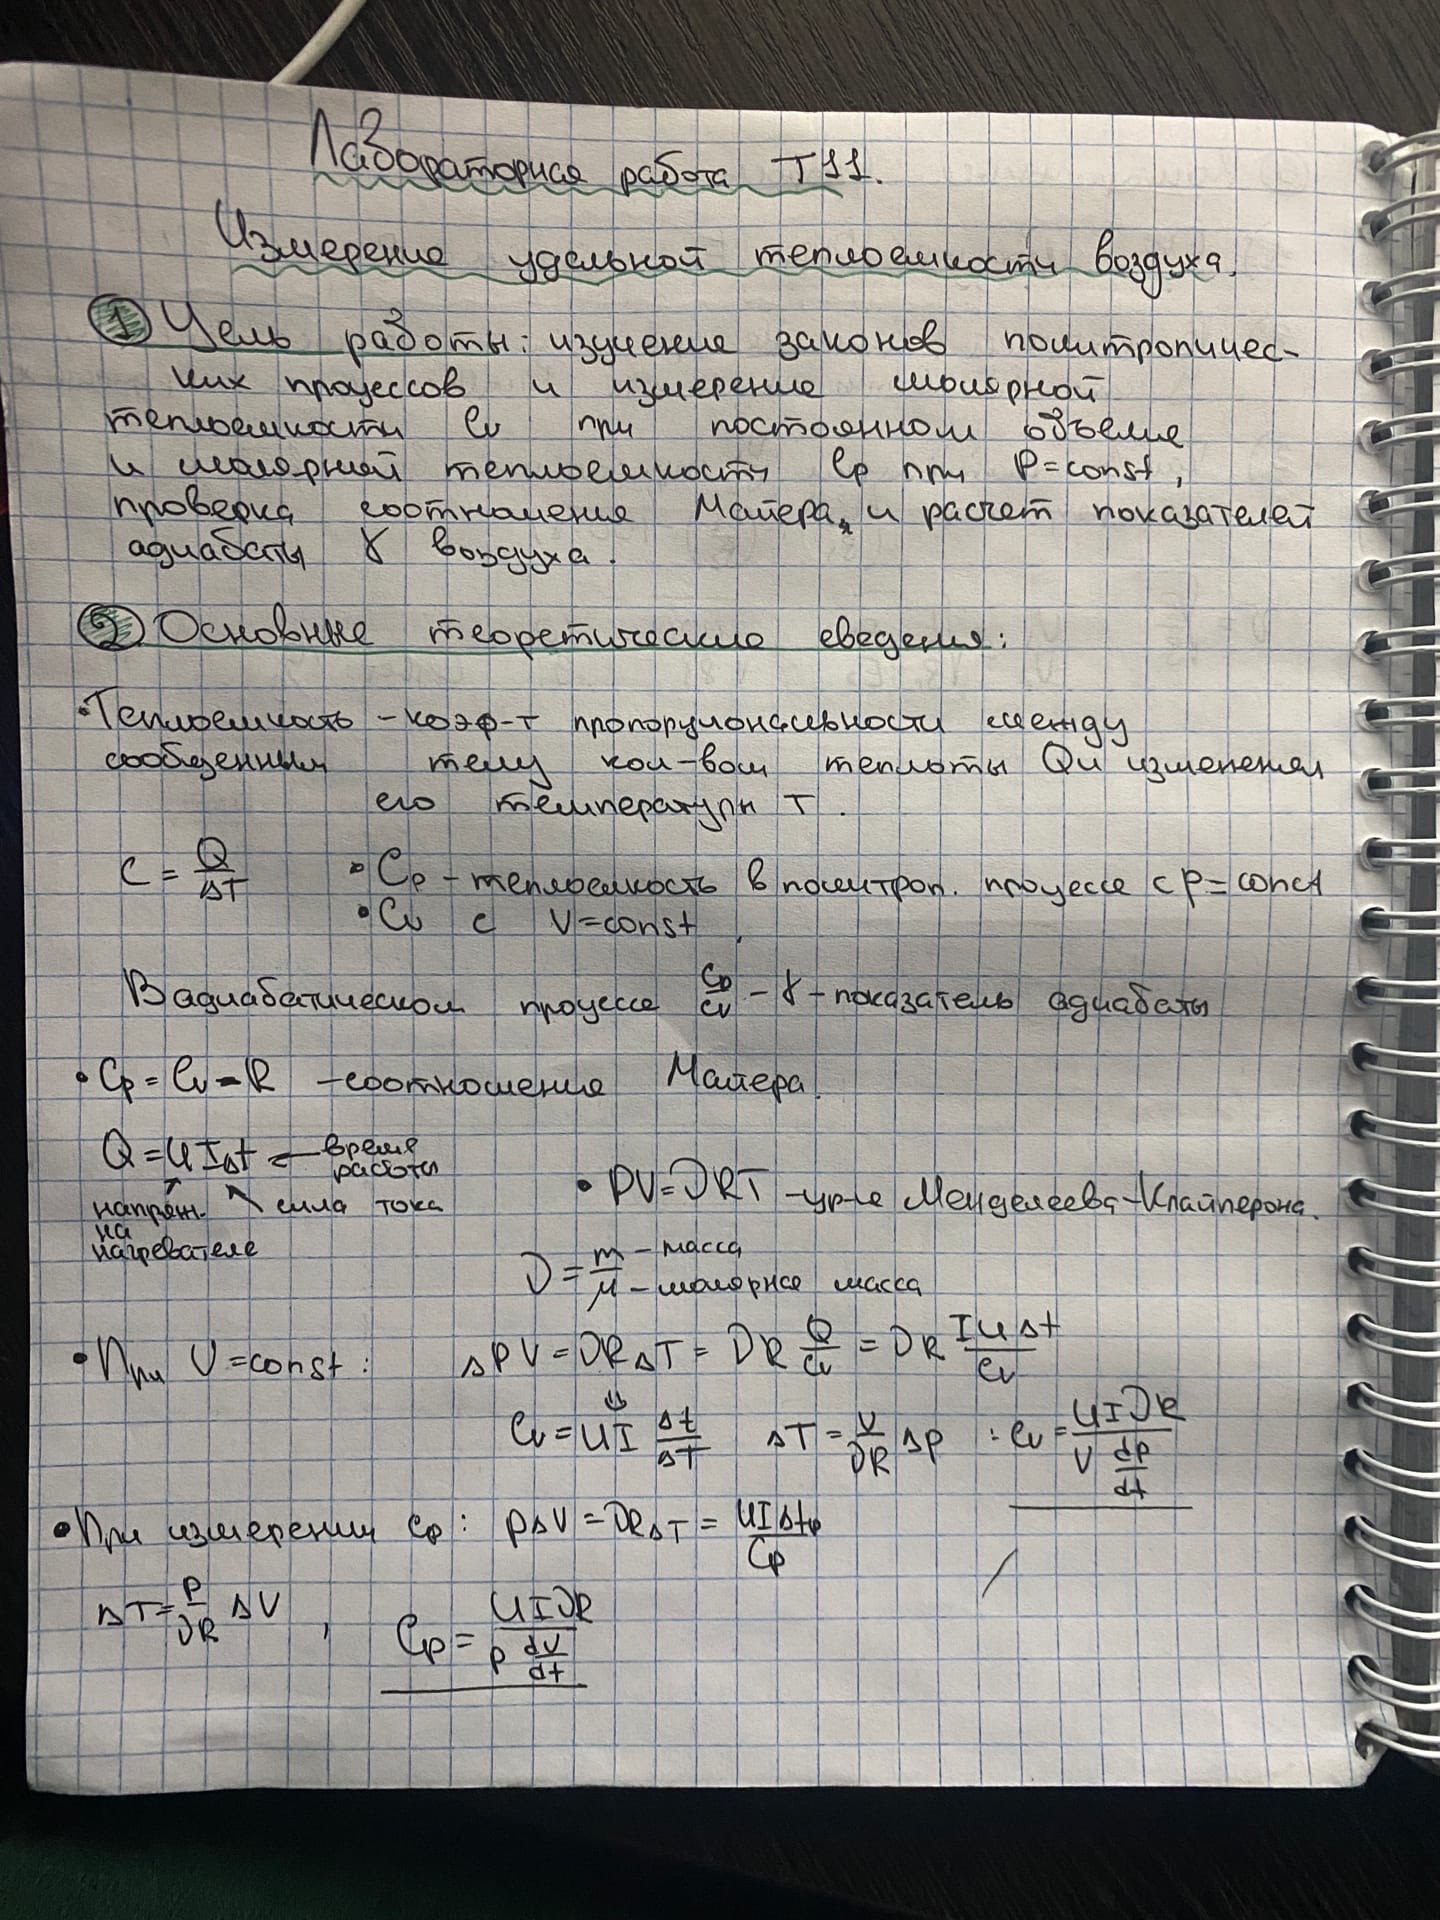 Лабораторная работа Т11.
Измерение удельной теплоемкости воздуха.
① Цель работы: изучение законов политропичес-
ких процессов и измерение молярной
теплоемкости Cv при постоянном объеме
и молярной теплоемкости Cp при P=const,
проверка соотношения Майера, и расчет показателей
адиабаты γ воздуха.
② Основные теоретические сведения:
• Теплоемкость – коэф-т пропорциональности между
сообщенным телу кол-вом теплоты Q и изменением
его температуры T.
C = Q/ΔT • Cp – теплоемкость в политроп. процессе с p=const
• Cv с V=const.
В адиабатическом процессе Cp/Cv – γ – показатель адиабаты
• Cp = Cv – R – соотношение Майера.
Q = UIΔt ← время
работы
напряж. сила тока
на
нагревателе
• PV = νRT – ур-е Менделеева-Клайперона.
ν = m/μ – масса
– молярная масса
• При V=const: ΔPV = νRΔT = νR Q/Cv = νR IUΔt/Cv
⇓
Cv = UI Δt/ΔT ΔT = V/νR Δp : Cv = UIνR/(V dp/dt)
• При измерении Cp: pΔV = νRΔT = UIΔtp/Cp
ΔT = P/νR ΔV , Cp = UIνR/(p dV/dt)